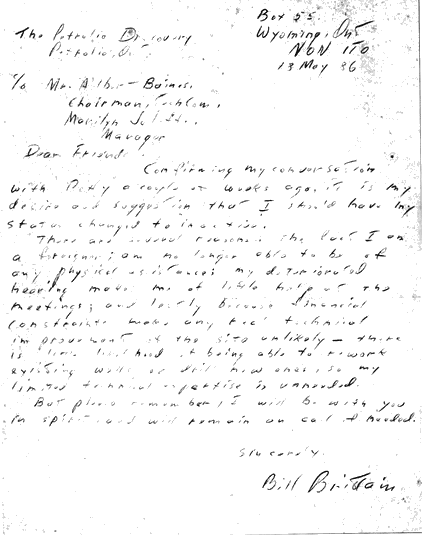 Box 55
Wyoming, Ont
N0N 1T0
13 May 86
The Petrolia Discovery
Petrolia, Ont.
c/o Mr. Baines,
Chairman,
Marilyn
Manager
Dear Friends
Confirming my conversation
with Betty a couple of weeks ago, it is my
desire and suggestion that I should have my
status changed to inactive.
There are several reasons: the last I am
a foreigner; I am no longer able to be of
any physical assistance; my deteriorated
hearing makes me of little help at the
meetings; and lastly because financial
constraints make any real technical
improvement of the site unlikely - there
is little likelihood of being able to rework
existing wells or drill new ones, so my
limited technical expertise is unneeded.
But please remember, I will be with you
in spirit and will remain on call if needed.
Sincerely.
Bill Brittain